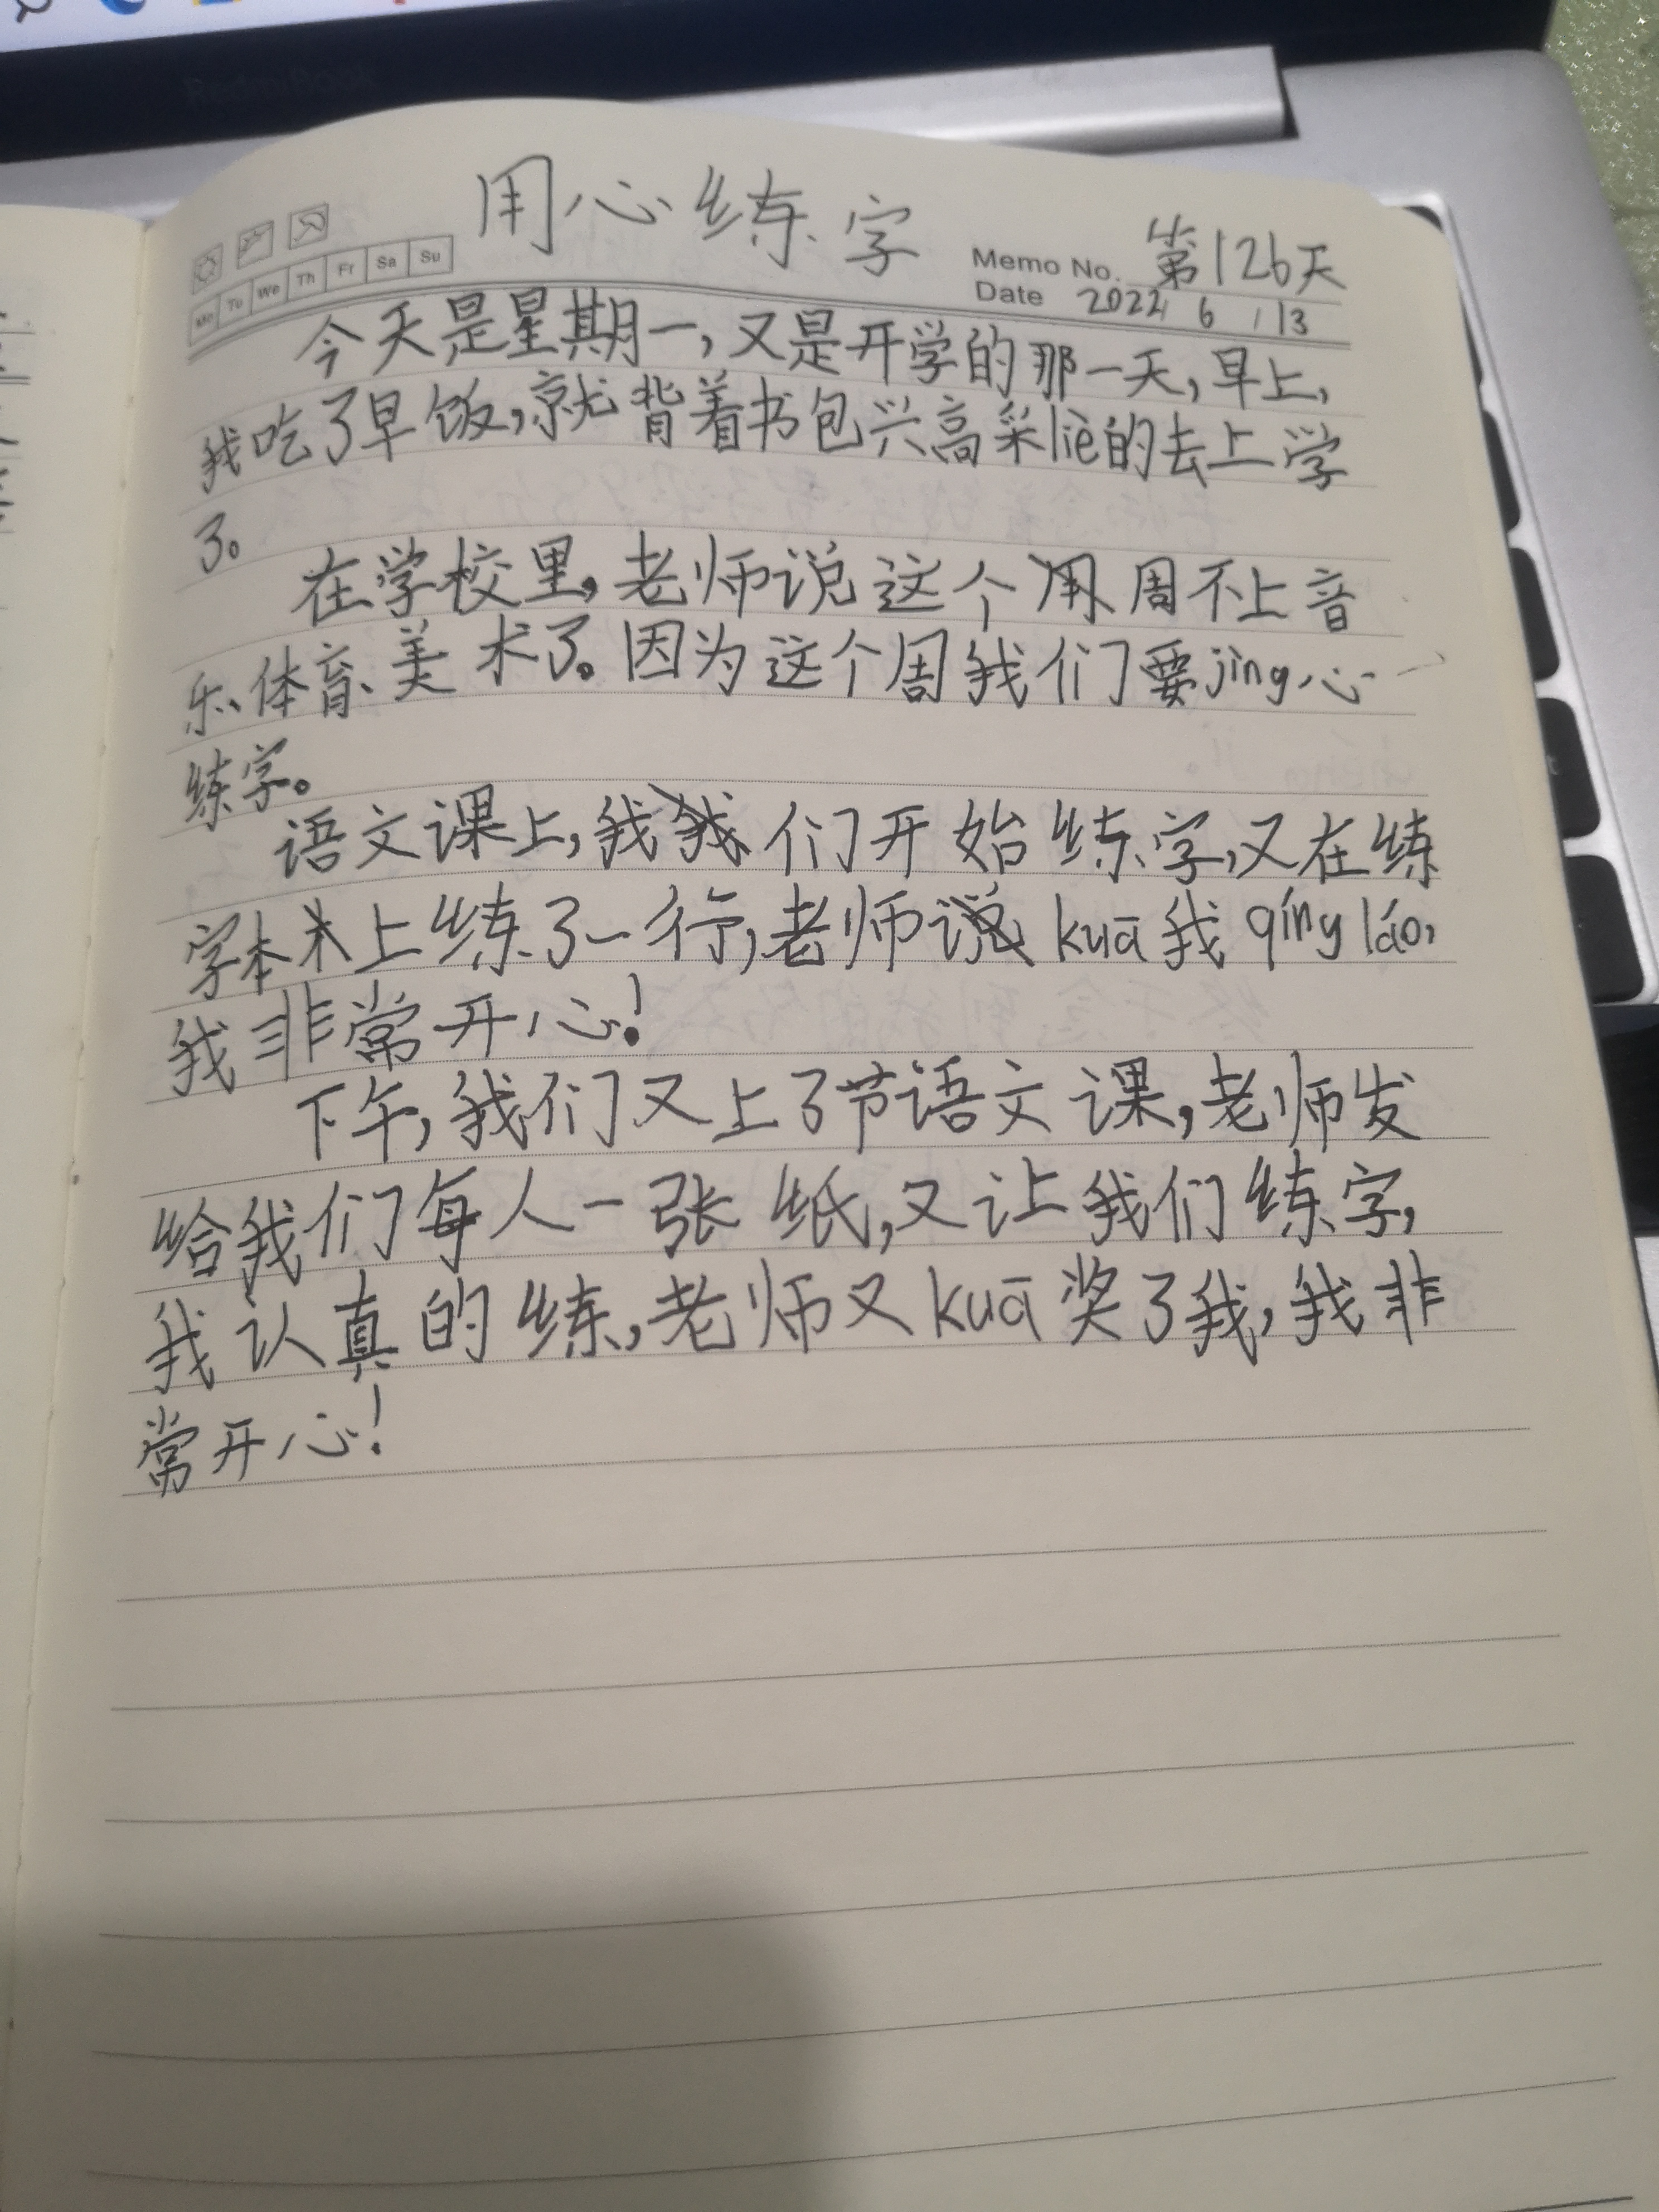 用心练字
Mo Tu We Th Fr Sa Su
Memo No. 第126天
Date 2022 6 / 13
今天是星期一,又是开学的那一天,早上,
我吃了早饭,就背着书包兴高采liè的去上学
了。
在学校里,老师说这个周不上音
乐、体育、美术了。因为这个周我们要jīng心
练字。
语文课上,我们开始练字,又在练
字本上练了一行,老师kuā我qíng láo,
我非常开心!
下午,我们又上了节语文课,老师发
给我们每人一张纸,又让我们练字,
我认真的练,老师又kuā奖了我,我非
常开心!